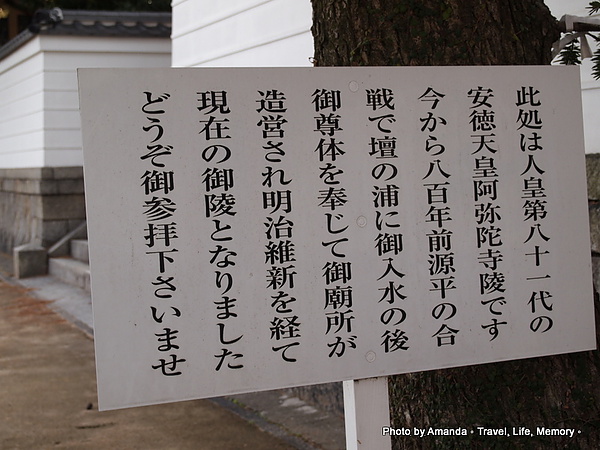 此処は人皇第八十一代の
安徳天皇阿弥陀寺陵です
今から八百年前源平の合
戦で壇の浦に御入水の後
御尊体を奉じて御廟所が
造営され明治維新を経て
現在の御陵となりました
どうぞ御参拝下さいませ
Photo by Amanda。Travel, Life, Memory。